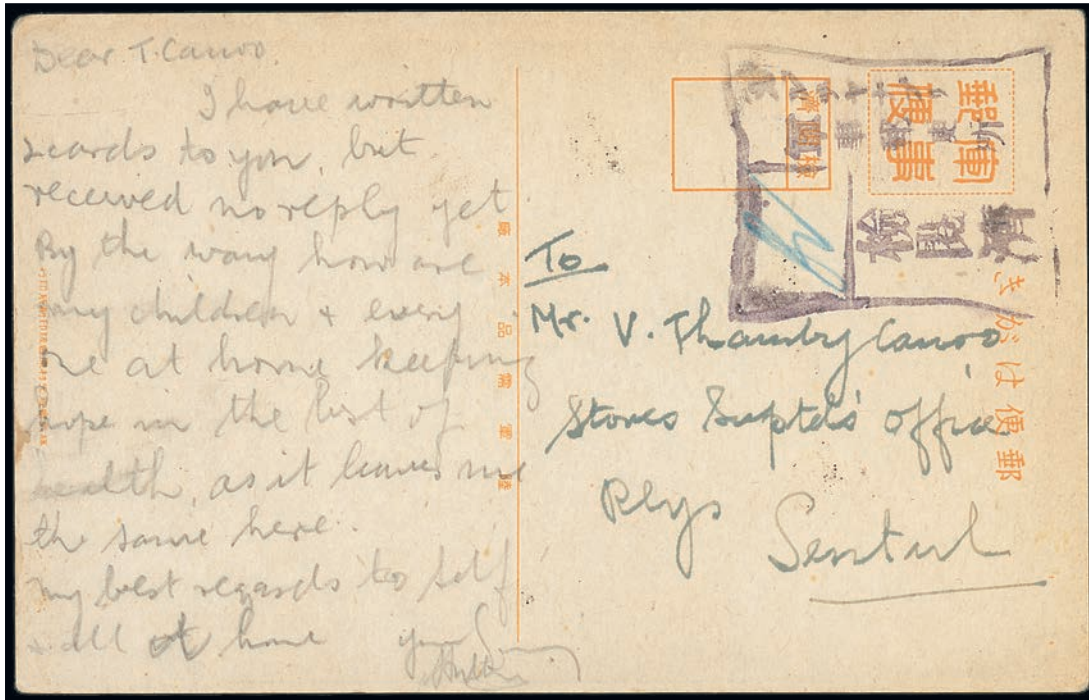 Dear T. Canoo.
I have written
2 cards to you, but
received no reply yet.
By the way how are
my children & every
one at home keeping
hope in the best of
health, as it leaves me
the same here.
my best regards to self
& all at home
To
Mr. V. Thamby Canoo
Stores Suptd's Office
Rlys
Sentul
軍事
郵便
檢閲濟
郵便はがき
陸軍需品本廠